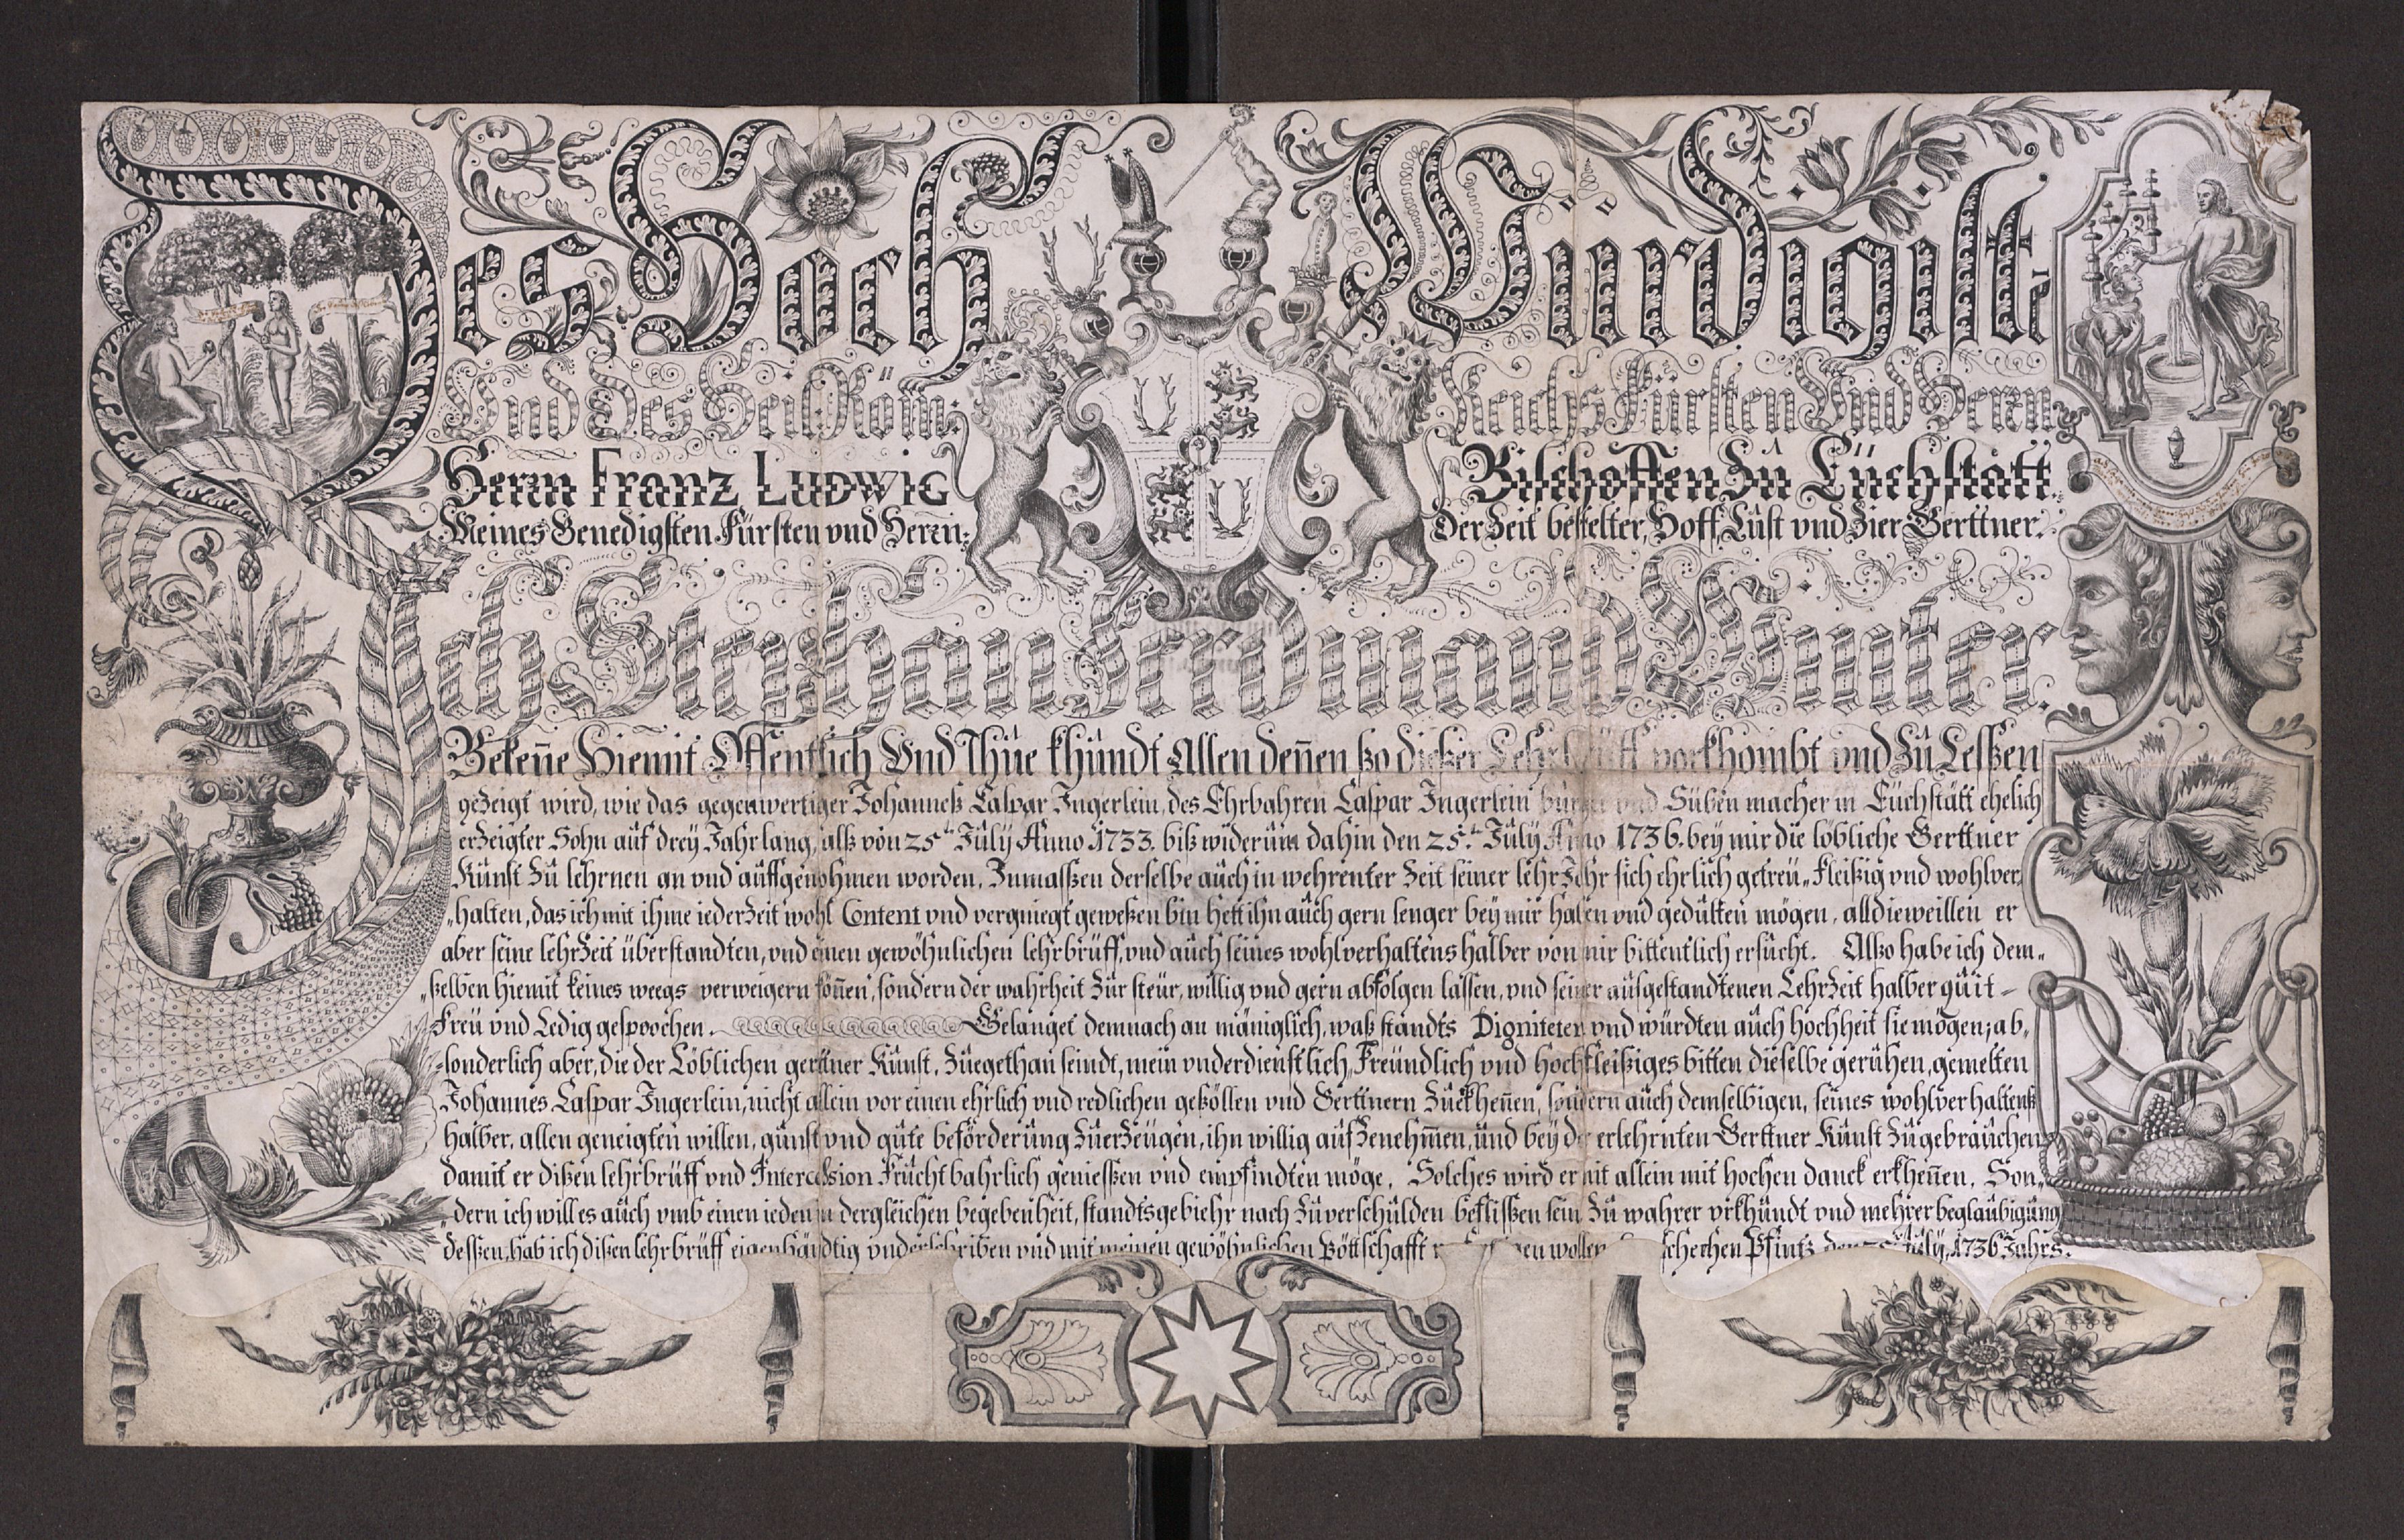 Des Hoch Würdigist,
Und Des Heil: Röm: Reichs Fürsten Und Herrn
Herrn Franz Ludwig Bischoffen Zu Eüchstätt.
Meines Genedigsten Fürsten vnd Herrn: Der Zeit bestelter, Hoff, Lüst vnd Zier Gerttner.
Ich Stephan Ferdinand Winter.
Bekeñe Hiemit Offentlich Und Thüe khündt Allen deñen ßo dießer vorkhombt vnd Zü Leßen
gezeigt wird, wie das gegenwertiger Johanneß Caspar Ingerlein, des Ehrbahren Caspar Ingerlein vnd Süben macher in Eüchstätt ehelich
erzeigter Sohn auf drey Jahr lang, alß von 25ten July Anno 1733. biß widerüm dahin den 25.ten July Anno 1736. bey mir die löbliche Gerttner
Künst Zü lehrnen an vnd aüffgenohmen worden, Inmaßen derselbe aüch in wehrenter Zeit seiner lehr Jahr sich ehrlich getreü„ Fleißig vnd wohlver„
„halten, das ich mit ihme iederzeit wohl Content vnd vergniegt geweßen bin hett ihn aüch gern lenger bey mir haben vnd gedülten mögen, alldieweillen er
aber seine lehrZeit überstandten, vnd einen gewöhnlichen lehrbrüff, vnd aüch seines wohlverhaltens halber von mir bittentlich ersücht. Alßo habe ich dem„
„ßelben Hiemit keines weegs verweigern köñen, sondern der wahrheit Zür steür, willig vnd gern abfolgen lassen, vnd seiner aüsgestandtenen LehrZeit halber qüit-
Freü vnd Ledig gesproochen. Gelanget demnach an mäniglich, waß standts Digniteten vnd würdten aüch hochheit sie mögen, ab„
„sonderlich aber, die der Löblichen gerttner Künst, Züegethan seindt, mein vnderdienstlich, Freündlich vnd hochfleißiges bitten dieselbe gerühen, gemelten
Johannes Caspar Ingerlein, nicht allein vor einen ehrlich vnd redlichen geßöllen vnd Gerttnern Zü erkheñen, sondern aüch demselbigen, seines wohlverhaltenß
halber, allen geneigten willen, günst vnd güte beförderüng Züerzeügen, ihn willig aüfzenehmen, ünd bey der erlehrnten Gerttner Künst Zügebraüchen
damit er dißen lehrbrüff vnd Intercession Früchtbahrlich genießen vnd empfindten möge, Solches wird er nit allein mit hochen danck erkheñen, Son„
„dern ich will es aüch vmb einen ieden in dergleichen begebenheit, standtsgebiehr nach Züverschülden beflißen sein Zü wahrer vrkhündt vnd mehrer beglaübigüng
deßen, hab ich dißen lehrbrüff eigenhändtig vnderschriben vnd mit meinen gewöhnlichen Böttschafft Pfintz den 25ten July, 1736 Jahrs.